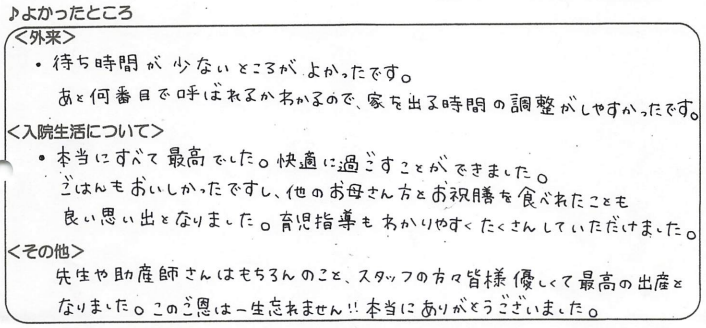 ♪よかったところ
＜外来＞
・待ち時間が少ないところがよかったです。
あと何番目で呼ばれるかわかるので、家を出る時間の調整がしやすかったです。
＜入院生活について＞
・本当にすべて最高でした。快適に過ごすことができました。
ごはんもおいしかったですし、他のお母さん方とお祝膳を食べれたことも
良い思い出となりました。育児指導もわかりやすくたくさんしていただけました。
＜その他＞
先生や助産師さんはもちろんのこと、スタッフの方々皆様優しくて最高の出産と
なりました。このご恩は一生忘れません!!本当にありがとうございました。